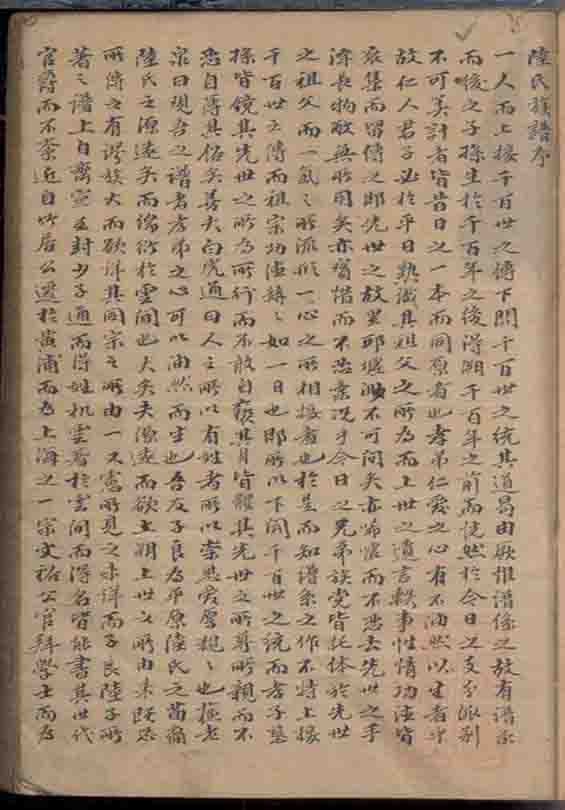 陸氏族譜序
一人而上接千百世之傳下開千百世之統其道曷由歟惟譜係之故有譜系
而後之子孫生於千百年之後得溯千百年之前而使然於今日之支分派別
不可美計者皆昔日之一本而同原者也孝弟仁愛之心有不油然以生者乎
故仁人君子必於平日熟識其祖父之所為而上世之遺言軼事性情功德皆
裒集而留傳之即先世之故里邱墟渺不可問矣亦歸懷而不忘去先世之手
澤長物敝無所用矣亦寶惜而不忍棄況乎今日之兄弟族黨皆托体於先世
之祖父而一氣之所流形一心之所相接者也於是而知譜系之作不特上接
千百世之傳而祖宗功德綿綿如一日也即所以下開千百世之統而孝子慈
孫皆鏡其先世之所為所行而不敢自褻其身皆體其先世之所尊所親而不
忍自薄其俗矣善夫白虎通曰人之所以有姓者所以崇恩愛厚親親也蘇老
泉曰觀吾之譜者孝弟之心可以油然而生也吾友子良為平原陸氏之苗裔
陸氏之源遠矣而端衍於雲間也久矣夫源遠而欲上溯上世之所由来既恐
所傳之有謬族大而欲详其同宗之所由一又慮所見之未详而子良陸子所
著之譜上自齊宣王封少子通而得姓机雲著於雲間而得名皆能書其世代
官爵而不紊近自竹居公遷於黄浦而為上海之一宗文裕公官拜學士而為